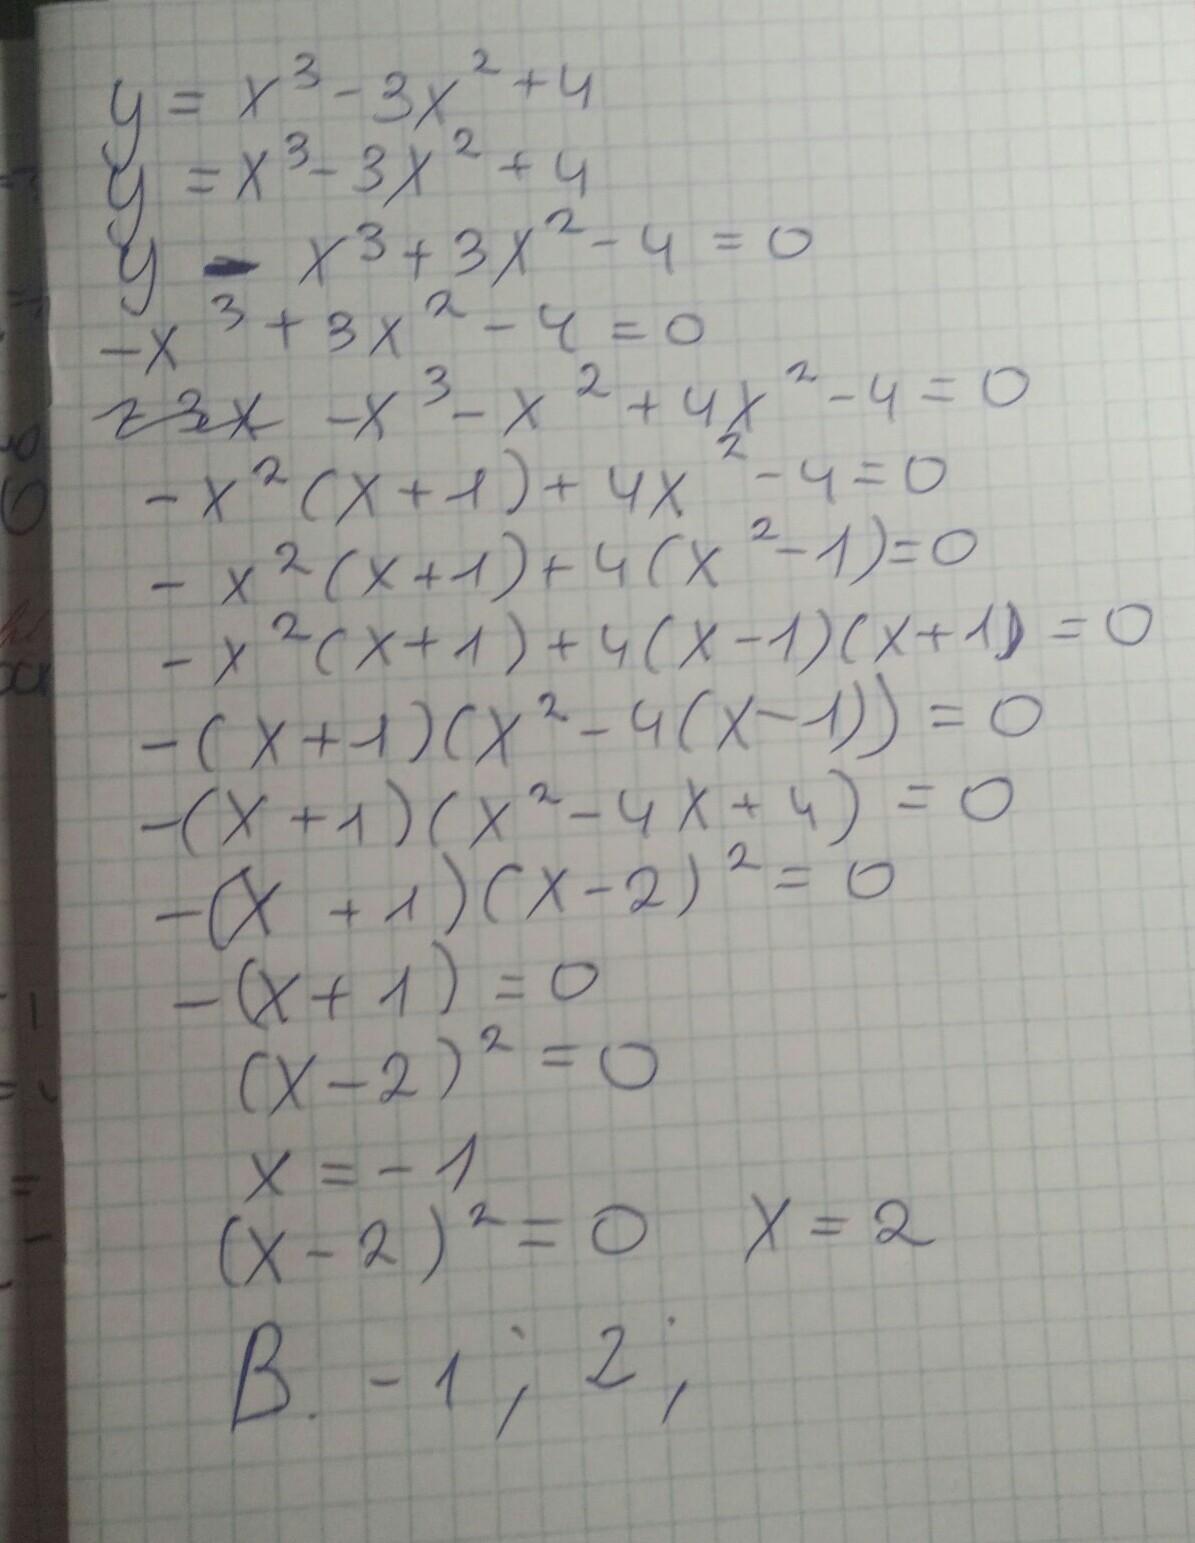 y = x³ - 3x² + 4
y = x³ - 3x² + 4
y - x³ + 3x² - 4 = 0
-x³ + 3x² - 4 = 0
-x³ - x² + 4x² - 4 = 0
-x²(x+1) + 4x² - 4 = 0
-x²(x+1) + 4(x² - 1) = 0
-x²(x+1) + 4(x-1)(x+1) = 0
-(x+1)(x² - 4(x-1)) = 0
-(x+1)(x² - 4x + 4) = 0
-(x+1)(x-2)² = 0
-(x+1) = 0
(x-2)² = 0
x = -1
(x-2)² = 0 x = 2
В. -1; 2;